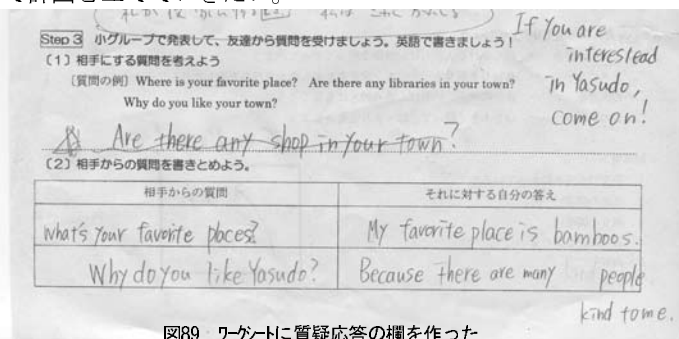 て計画を立てていきたい。
Step 3 小グループで発表して、友達から質問を受けましょう。英語で書きましょう！
(1) 相手にする質問を考えよう
〔質問の例〕 Where is your favorite place? Are there any libraries in your town?
Why do you like your town?
Are there any shop in your town?
If you are
interestead
in Yasudo,
come on!
(2) 相手からの質問を書きとめよう。
相手からの質問 それに対する自分の答え
What's your favorite places? My favorite place is bamboos.
Why do you like Yasudo? Because there are many people
kind to me.
図89 ワークシートに質疑応答の欄を作った